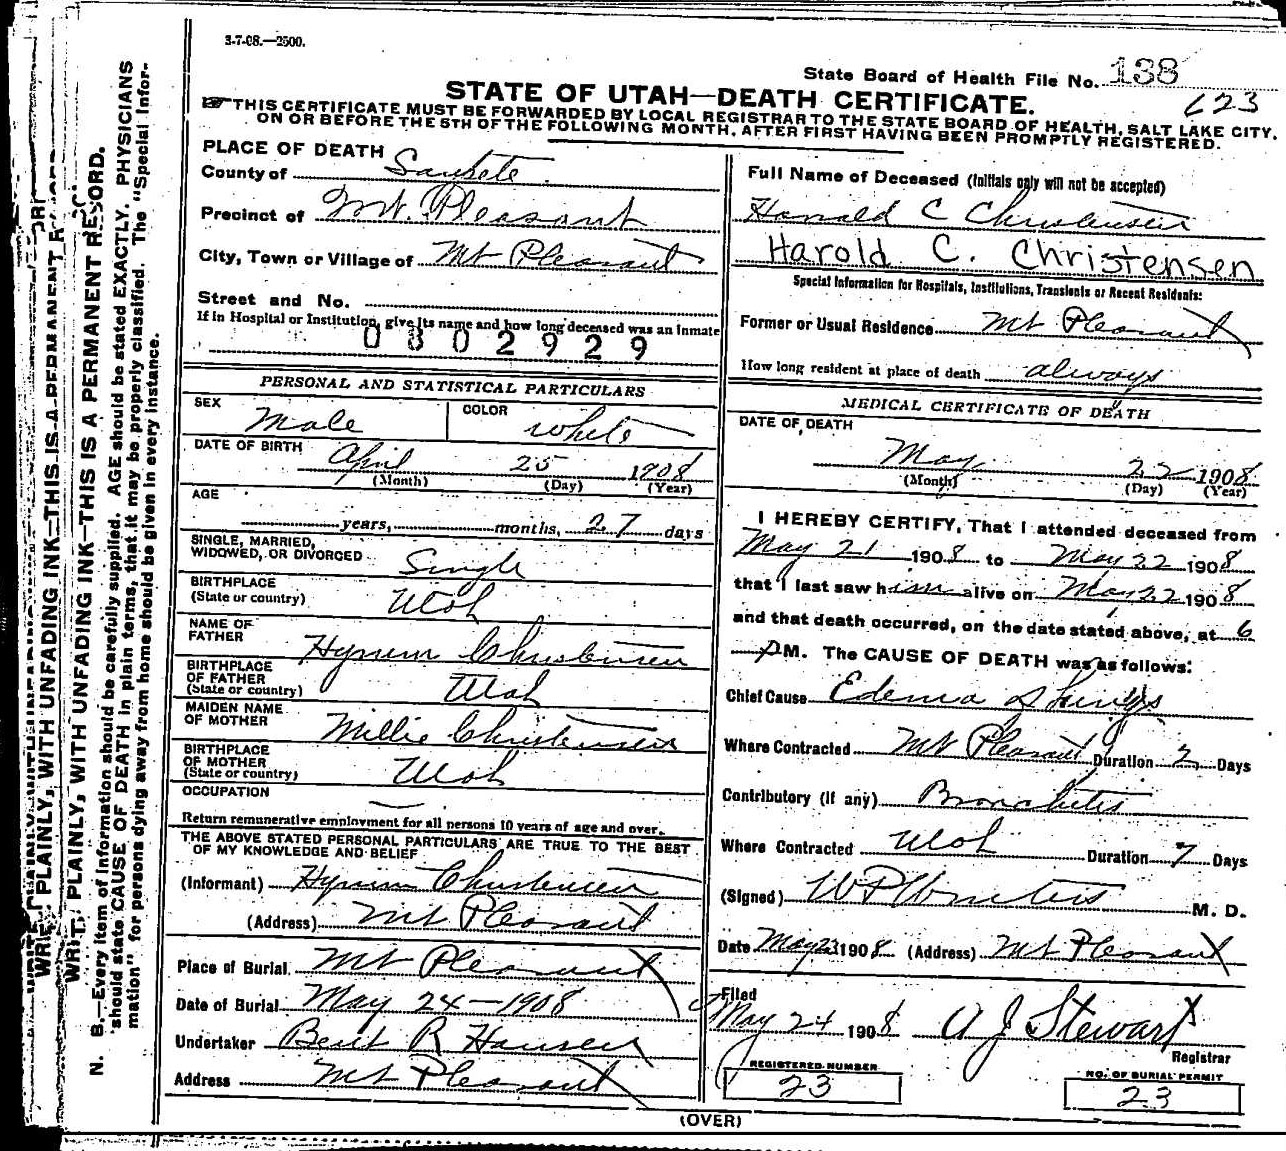 3-7-08.—2500.
State Board of Health File No. 138
623
STATE OF UTAH—DEATH CERTIFICATE.
THIS CERTIFICATE MUST BE FORWARDED BY LOCAL REGISTRAR TO THE STATE BOARD OF HEALTH, SALT LAKE CITY,
ON OR BEFORE THE 5TH OF THE FOLLOWING MONTH, AFTER FIRST HAVING BEEN PROMPTLY REGISTERED.
PLACE OF DEATH
County of Sanpete
Precinct of Mt. Pleasant
City, Town or Village of Mt Pleasant
Street and No.
If in Hospital or Institution, give its name and how long deceased was an inmate
0302929
PERSONAL AND STATISTICAL PARTICULARS
SEX Male COLOR White
DATE OF BIRTH April 25 1908
(Month) (Day) (Year)
AGE
years, months, 27 days
SINGLE, MARRIED,
WIDOWED, OR DIVORCED Single
BIRTHPLACE
(State or country) Utah
NAME OF
FATHER Hyrum Christensen
BIRTHPLACE
OF FATHER
(State or country) Utah
MAIDEN NAME
OF MOTHER Millie Christensen
BIRTHPLACE
OF MOTHER
(State or country) Utah
OCCUPATION —
Return remunerative employment for all persons 10 years of age and over.
THE ABOVE STATED PERSONAL PARTICULARS ARE TRUE TO THE BEST
OF MY KNOWLEDGE AND BELIEF
(Informant) Hyrum Christensen
(Address) Mt Pleasant
Place of Burial Mt Pleasant
Date of Burial May 24—1908
Undertaker Bent R Hansen
Address Mt Pleasant
Full Name of Deceased (Initials only will not be accepted)
Harold C Christensen
Harold C. Christensen
Special Information for Hospitals, Institutions, Transients or Recent Residents:
Former or Usual Residence Mt Pleasant
How long resident at place of death always
MEDICAL CERTIFICATE OF DEATH
DATE OF DEATH
May 22 1908
(Month) (Day) (Year)
I HEREBY CERTIFY, That I attended deceased from
May 21 1908 to May 22 1908
that I last saw him alive on May 22 1908
and that death occurred, on the date stated above, at 6
P M. The CAUSE OF DEATH was as follows:
Chief Cause Edema of Lungs
Where Contracted Mt Pleasant Duration 2 Days
Contributory (if any) Bronchitis
Where Contracted Utah Duration 7 Days
(Signed) W P Winters M. D.
Date May 23 1908 (Address) Mt Pleasant
Filed
May 24 1908 A J Stewart
Registrar
REGISTERED NUMBER
23
NO. OF BURIAL PERMIT
23
(OVER)
WRITE PLAINLY, WITH UNFADING INK—THIS IS A PERMANENT RECORD.
WRITE PLAINLY, WITH UNFADING INK—THIS IS A PERMANENT RECORD.
N. B.—Every item of information should be carefully supplied. AGE should be stated EXACTLY. PHYSICIANS
should state CAUSE OF DEATH in plain terms, that it may be properly classified. The "Special Infor-
mation" for persons dying away from home should be given in every instance.